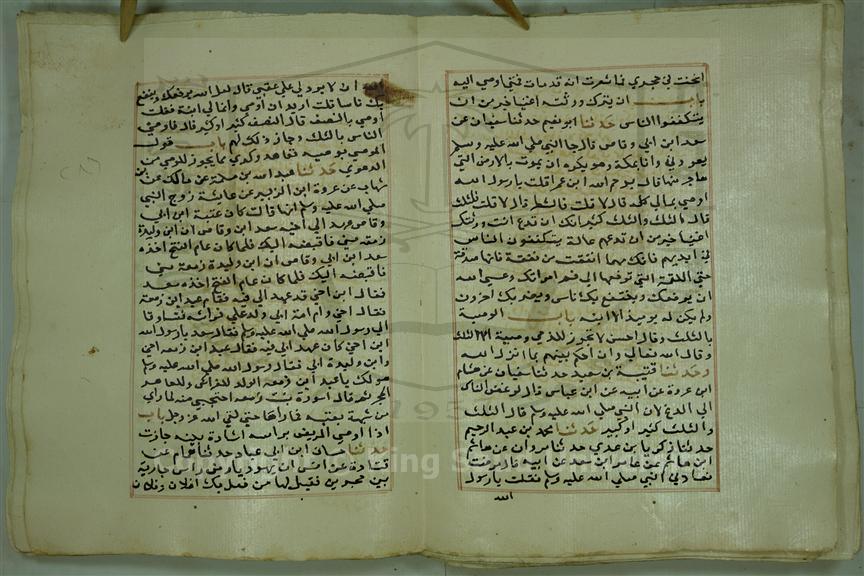 انخنث في حجري فما شعرت انه قد مات فمتى اوصي اليه
باب ان يترك ورثته اغنيا خير من ان
يتكففوا الناس حدثنا ابو نعيم حدثنا سفيان عن
سعد ابن ابي وقاص قال جا النبي صلى الله عليه وسلم
يعودني وانا بمكة وهو يكره ان يموت بالارض التي
هاجر منها قال يرحم الله ابن عفرا قلت يا رسول الله
اوصي بمالي كله قال لا قلت فالشطر قال لا قلت الثلث
قال الثلث والثلث كثير انك ان تدع انت ورثتك
اغنيا خير من ان تدعهم عالة يتكففون الناس
في ايديهم فانك مهما انفقت من نفقة فانها صدقة
حتى اللقمة التي ترفعها الى في امراتك وعسى الله
ان يرفعك وينتفع بك ناس ويضر بك اخرون
ولم يكن له يوميذ الا ابنه باب الوصية
بالثلث وقال الحسن لا تجوز للذمي وصية الا الثلث
وقال الله تعالى وان احكم بينهم بما انزل الله
وحدثنا قتيبة بن سعيد حدثنا سفيان عن هشام
ابن عروة عن ابيه عن ابن عباس قال لو غض الناس
الى الربع لان النبي صلى الله عليه وسلم قال الثلث
والثلث كثير او كبير حدثنا محمد بن عبد الرحيم
حدثنا زكريا بن عدي حدثنا مروان عن هاشم
ابن هاشم عن عامر ابن سعد عن ابيه قال مرضت
فعادني النبي صلى الله عليه وسلم فقلت يا رسول
الله
الله ان لا يردني على عقبي قال لعل الله يرفعك وينفع
بك ناسا قلت اريد ان اوصي وانما لي ابنة فقلت
اوصي بالنصف قال النصف كثير او كبير قال فاوصى
الناس بالثلث وجاز ذلك لهم باب قول
الموصي لوصيه تعاهد ولدي وما يجوز للوصي من
الدعوى حدثنا عبد الله بن مسلمة عن مالك عن بن
شهاب عن عروة ابن الزبير عن عايشة زوج النبي
صلى الله عليه وسلم انها قالت كان عتبة ابن ابي
وقاص عهد الى اخيه سعد ابن وقاص ان ابن وليدة
زمعة مني فاقبضه اليك فلما كان عام الفتح اخذه
سعد ابن ابي وقاص ان ابن وليدة زمعة مني
فاقبضه اليك فلما كان عام الفتح اخذه سعد
فقال ابن اخي قد عهد الي فيه فقام عبد ابن زمعة
فقال اخي وابن امة ابي ولد على فراشه فتساوقا
الى رسول الله صلى الله عليه وسلم فقال سعد يا رسول الله
ابن اخي كان عهد الي فيه فقال عبد ابن زمعه اخي
وابن وليدة ابي فقال رسول الله صلى الله عليه وسلم
هو لك يا عبد ابن زمعه الولد للفراش وللعاهر
الحجر ثم قال لسودة بنت زمعه احتجبي منه لما راى
من شبهه بعتبه فما راها حتى لقي الله عز وجل باب
اذا اومى المريض براسه اشارة بينه جازت
حدثنا حسان ابن ابي عباد حدثنا همام عن
قتادة عن انس ان يهوديا رض راس جارية
بين حجرين فقيل لها من فعل بك افلان وفلان